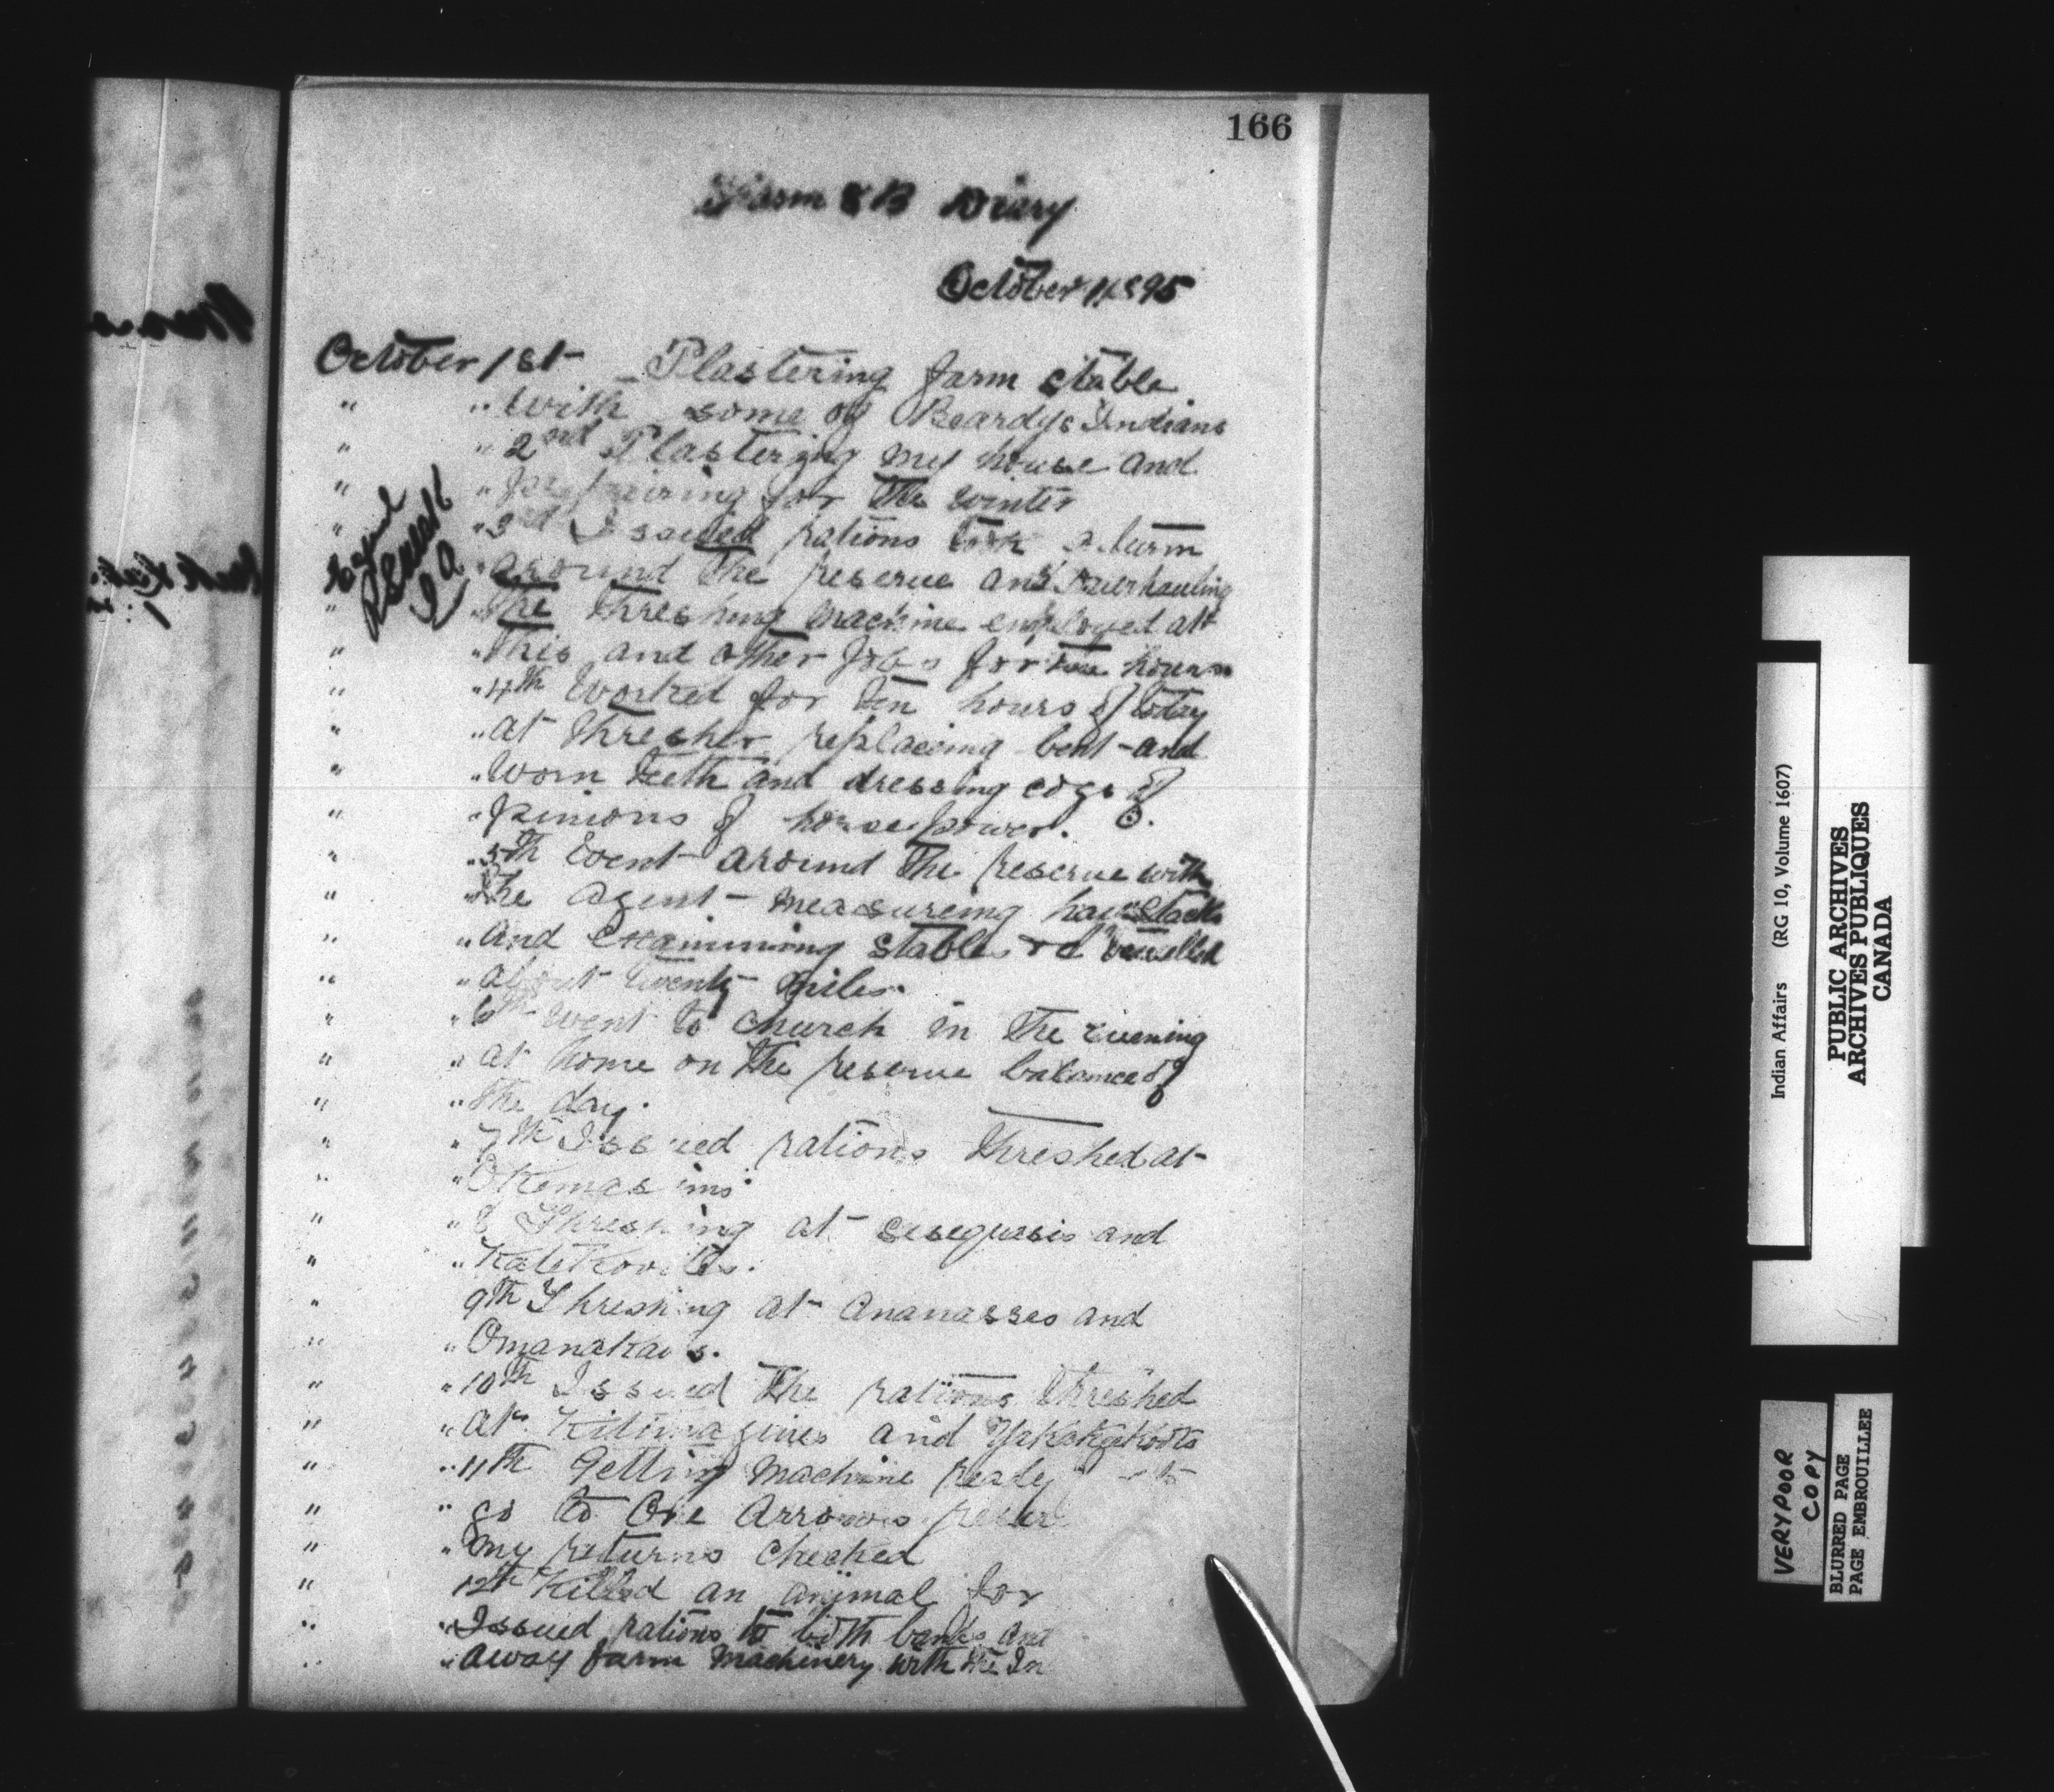 166
Farm 8B Diary
October 1895
October 1st Plastering farm stable
" " with some of Beardys Indians
" " 2nd Plastering my house and
" " preparing for the winter
" " 3rd Issued rations took a turn
" around the reserve and overhauling
" " the threshing machine employed at
" " this and other jobs for hours
" " 4th Worked for ten hours of today
" " at thresher replacing bent and
" " worn teeth and dressing cogs of
" " pinions of horse power.
" " 5th Went around the reserve with
" " the agent measureing hay stacks
" " and examining stables travelled
" " about twenty miles.
" " 6th Went to church in the evening
" " at home on the reserve balance of
" " the day.
" " 7th Issued rations threshed at
" " Okemasims
" " 8 Threshing at Seseguasis and
" "
" 9th Threshing at Ananasses and
" " Omanakaws.
" " 10th Issued the rations threshed
" " at and
" " 11th Getting machine ready to
" " go to One Arrows
" " my returns checked
" 12th Killed an animal for
" " Issued rations to both bands and
" " away farm machinery with the In
Indian Affairs (RG 10, Volume 1607)
PUBLIC ARCHIVES
ARCHIVES PUBLIQUES
CANADA
VERY POOR
COPY
BLURRED PAGE
PAGE EMBROUILLEE